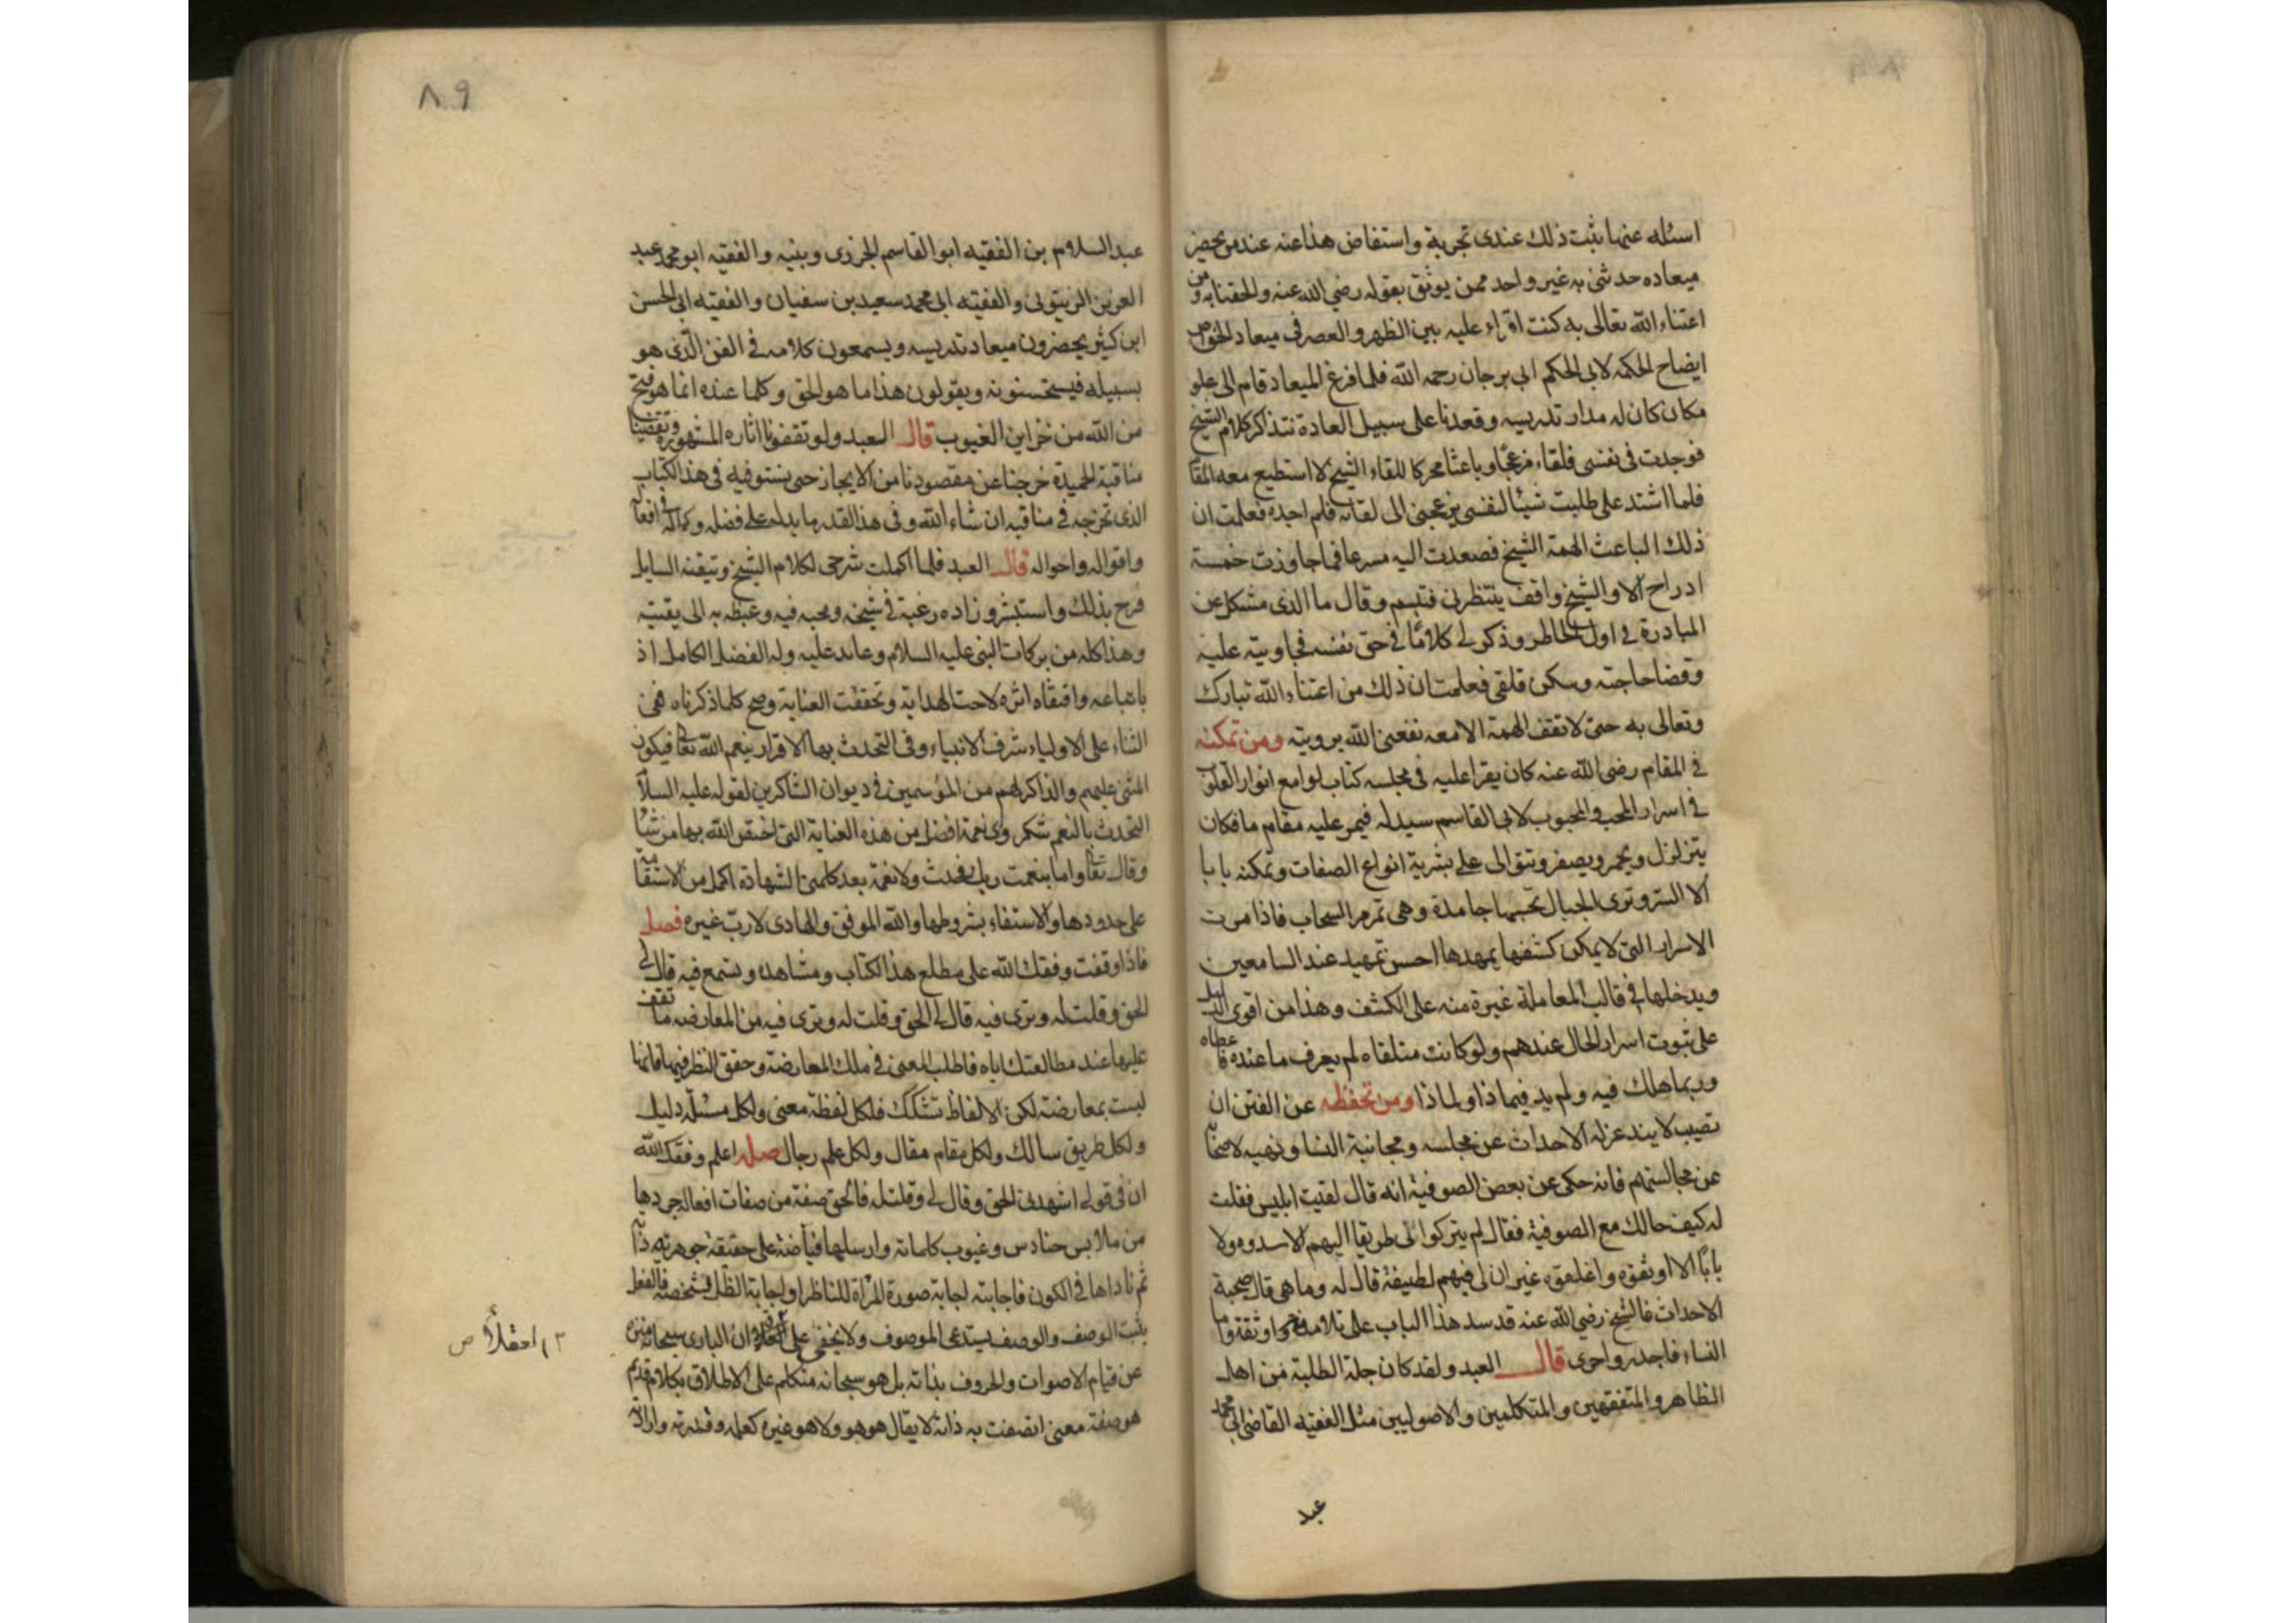 اسئله عنها ثبت ذلك عندى تجربة واستفاض هذا عنه عند من يحضر
ميعاده حدثنى به غير واحد ممن يوثق بقوله رضي الله عنه والحقنا به ومن
اعتناء الله تعالى به كنت اقراء عليه بين الظهر والعصر فى ميعاد الخواص
ايضاح الحكمه لابى الحكم ابى برجان رحمه الله فلما فرغ الميعاد قام الى علو
مكان كان له مدار تدريسه وقعدنا على سبيل العادة نتذاكر كلام الشيخ
فوجدت فى نفسى قلقاء مزعجا وباعثا محركا للقاء الشيخ لا استطيع معه المقا
فلما اشتد على طلبت شيئا لنفسى يزعجنى الى لقائه فلم اجده فعلمت ان
ذلك الباعث الهمة الشيخ فصعدت اليه مسرعا فما جاوزت خمسة
ادراج الا والشيخ واقف ينتظرنى فتبسم وقال ما الذى مشكل عن
المبادرة فى اول الخاطر وذكر لى كلاما فى حق نفسه فجاوبته عليه
وقضا حاجته وسكن قلقى فعلمت ان ذلك من اعتناء الله تبارك
وتعالى به حتى لا تقف الهمة الا معه نفعنى الله برويته ومن تمكنه
فى المقام رضى الله عنه كان يقرا عليه فى مجلسه كتاب لوامع انوار القلوب
فى اسرار المحب والمحبوب لابى القاسم سيدله فيمر عليه مقام ما فكان
يتزلزل ويحمر ويصفر وتتوالى على بشرية انواع الصفات وتمكنه يابا
الا الستر وترى الجبال تحسبها جامدة وهى تمر مر السحاب فاذا مرت
الاسرار التى لا يمكن كشفها يمهدها احسن تمهيد عند السامعين
ويدخلها فى قالب المعاملة غيرة منه على الكشف وهذا من اقوى الدليل
على ثبوت اسرار الحال عندهم ولو كانت متلقاه لم يعرف ما عنده
وربما هلك فيه ولم يد فيما ذا ولما ذا ومن تحفظه عن الفتن ان
تصيب لا يند عزله الاحداث عن مجلسه ومجانبة النسا ونهيه لاصحا
عن مجالستهم فانه حكى عن بعض الصوفية انه قال لقيت ابليس فقلت
له كيف حالك مع الصوفية فقال لم يتركوا لى طريقا اليهم الا سدوه ولا
بابا الا اوثقوه واغلقوه غير ان لى فيهم لطيفة قال له وما هى قال صحبة
الاحداث فالشيخ رضي الله عنه قد سد هذا الباب على تلامذه واوثقه واما
النساء فاجدر واحرى قال العبد ولقد كان جلة الطلبة من اهل
الظاهر والمتفقهين والمتكلمين والاصوليين مثل الفقيه القاضى ابى محمد
عبد
٨٩
عبد السلام بن الفقيه ابو القاسم الجزرى وبنيه والفقيه ابو محمد عبد
العزيز الزيتونى والفقيه ابى محمد سعيد بن سفيان والفقيه ابى الحسن
ابن كثير يحضرون ميعاد تدريسه ويسمعون كلامه فى الفن الذى هو
بسبيله فيستحسنونه ويقولون هذا ما هو الحق وكلما عنده انما هو فتح
من الله من خزاين الغيوب قال العبد ولو تقفونا اثاره المشهورة وتقصينا
مناقبة الحميدة خرجنا عن مقصودنا من الايجاز حتى يستوفيه فى هذا الكتاب
الذى تخرجه فى مناقبه ان شاء الله وفى هذا القدر ما يدل على فضله وكماله فى افعاله
واقواله واحواله قال العبد فلما اكملت شرحى لكلام الشيخ وتيقنه السايل
فرح بذلك واستبشر وزاده رغبة فى شيخه ومحبه فيه وغبطه به الى يقينيه
وهذا كله من بركات النبى عليه السلام وعايد عليه وله الفضل الكامل اذ
باتباعه واقتفاه اثره لاحت الهداية وتحققت العناية وصح كلما ذكرناه فمن
الثناء على الاولياء شرف الانبياء وفى التحدث بها الاقرار بنعم الله تعالى فيكون
المثنى عليهم والذاكر لهم من المؤسمين فى ديوان الشاكرين لقوله عليه السلا
التحدث بالنعم شكر وى نعمة افضل من هذه العناية التى اختص الله بها من شا
وقال تعالى واما بنعمت ربك فحدث ولا نعمة بعد كلمتى الشهادة اكمل من الاستقامة
على حدودها والاستفاء بشروطها والله الموفق والهادى لا رب غيره فصل
فاذا وقفت وفقك الله على مطلع هذا الكتاب ومشاهده وتسمع فيه قال لى
الحق وقلت له وترى فيه قال لى الحق وقلت له وترى فيه من المعارضه ما تقف
عليها عند مطالعتك اياه فاطلب المعنى فى ملك المعارضة وحقق النظر فيها فانها
ليست بمعارضة لكن الالفاظ تشكك فلكل لفظة معنى ولكل مسئلة دليل
ولكل طريق سالك ولكل مقام مقال ولكل علم رجال صله اعلم وفقك الله
ان فى قولى اشهدنى الحق وقال لى وقلت له فالحق صفة من صفات افعاله جردها
من ملابس حنادس وغيوب كلماته وارسلها فياضة على حقيقة جوهرته ذا
ثم ناداها فى الكون فاجابته اجابة صورة المرآة للناظر او اجابة الظل فشخصه فالفعل
يثبت الوصف والوصف يستدعى الموصوف ولا يخفى على ان البارى سبحانه منزه
عن قيام الاصوات والحروف بذاته بل هو سبحانه متكلم على الاطلاق بكلام قديم
هو صفة معنى اتصفت به ذاته لا يقال هو هو ولا هو غيره كعلمه وقدرته وارادته